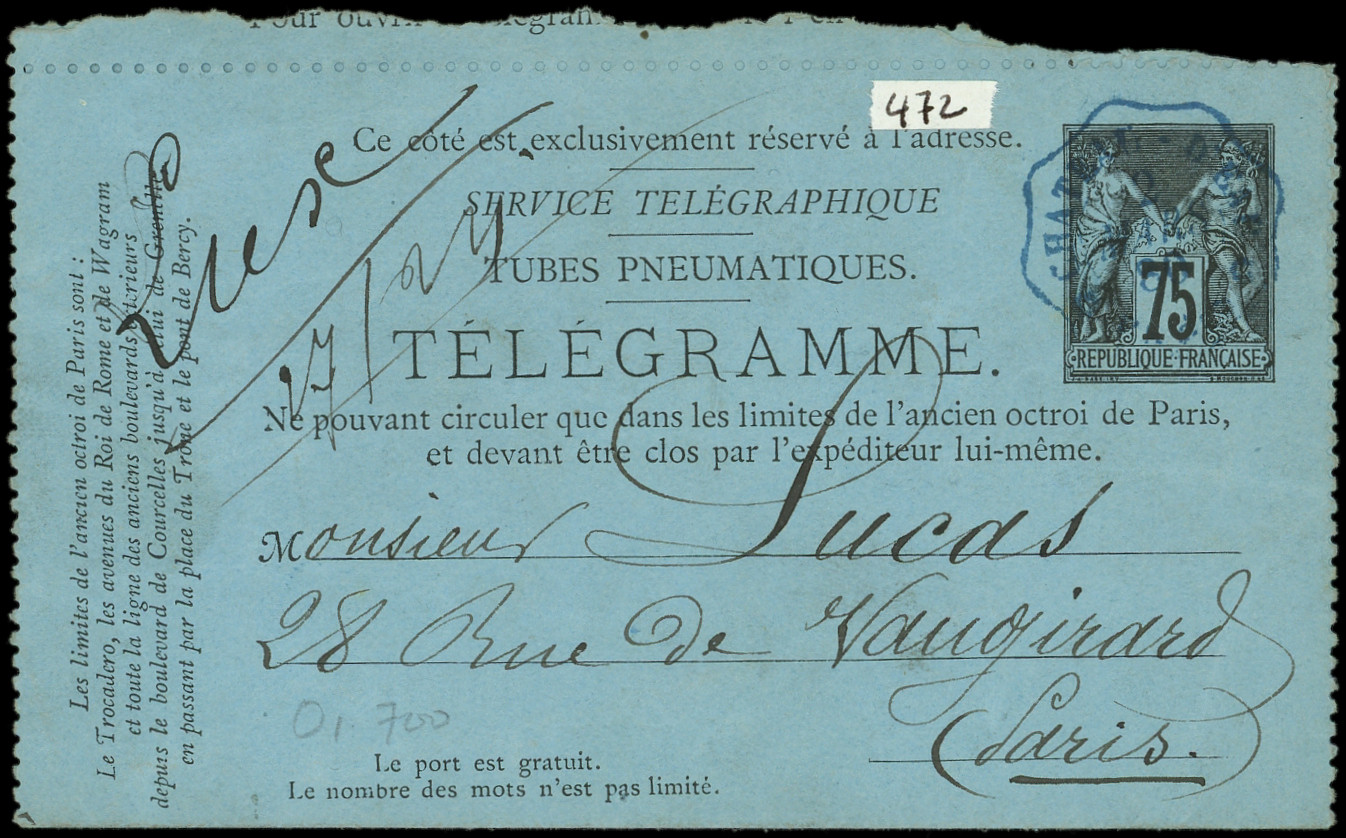 Pour ouvrir
472
Ce côté est exclusivement réservé à l'adresse.
SERVICE TÉLÉGRAPHIQUE
TUBES PNEUMATIQUES.
TÉLÉGRAMME.
Ne pouvant circuler que dans les limites de l'ancien octroi de Paris,
et devant être clos par l'expéditeur lui-même.
75
REPUBLIQUE FRANÇAISE
Monsieur Lucas
28 Rue de Vaugirard
Paris.
700
Le port est gratuit.
Le nombre des mots n'est pas limité.
Les limites de l'ancien octroi de Paris sont :
Le Trocadero, les avenues du Roi de Rome et de Wagram
et toute la ligne des anciens boulevards extérieurs
depuis le boulevard de Courcelles jusqu'à celui de Grenelle
en passant par la place du Trône et le pont de Bercy.